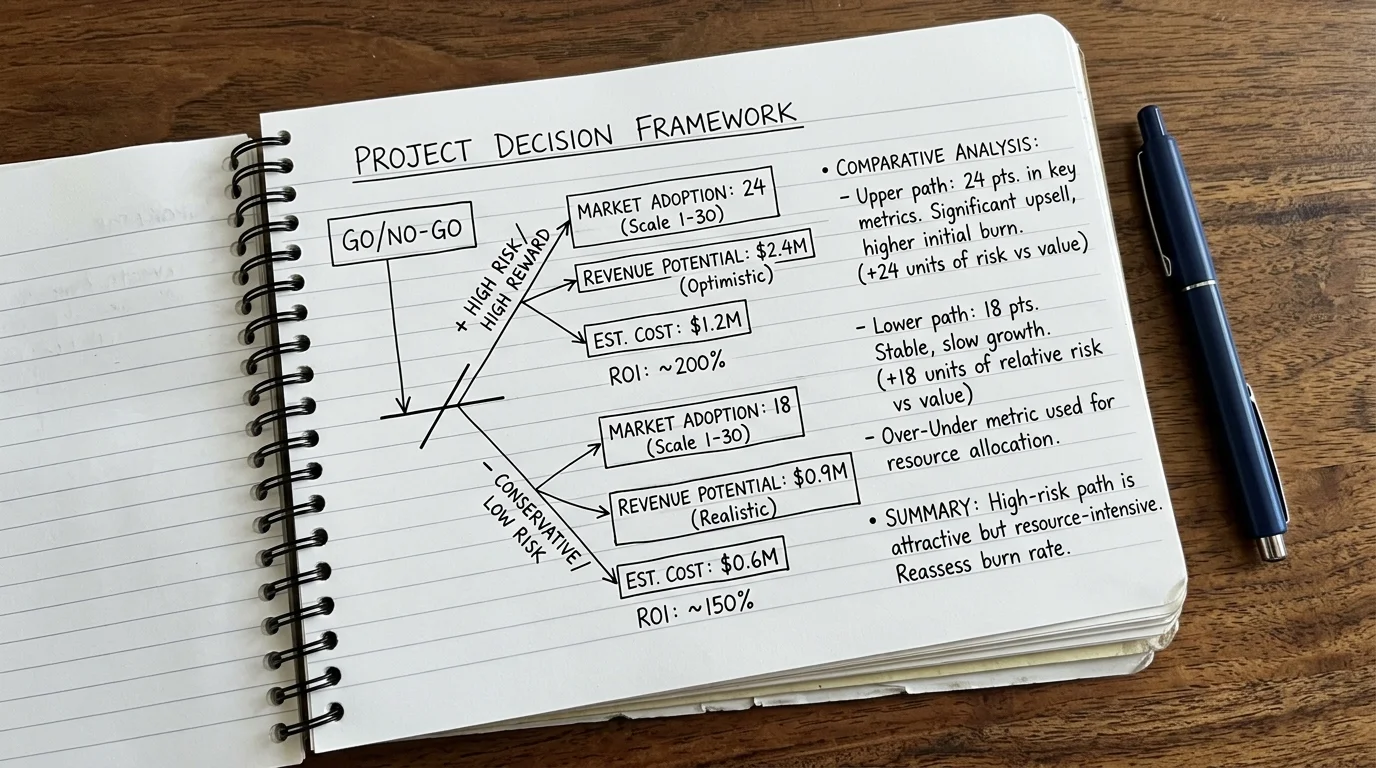 PROJECT DECISION FRAMEWORK
GO/NO-GO
+ HIGH RISK/
HIGH REWARD
MARKET ADOPTION: 24
(Scale 1-30)
REVENUE POTENTIAL: $2.4M
(Optimistic)
EST. COST: $1.2M
ROI: ~200%
- CONSERVATIVE/
LOW RISK
MARKET ADOPTION: 18
(Scale 1-30)
REVENUE POTENTIAL: $0.9M
(Realistic)
EST. COST: $0.6M
ROI: ~150%
• COMPARATIVE ANALYSIS:
- Upper path: 24 pts. in key
metrics. Significant upsell,
higher initial burn.
(+24 units of risk vs value)
- Lower path: 18 pts.
Stable, slow growth.
(+18 units of relative risk
vs value)
- Over-Under metric used for
resource allocation.
• SUMMARY: High-risk path is
attractive but resource-intensive.
Reassess burn rate.